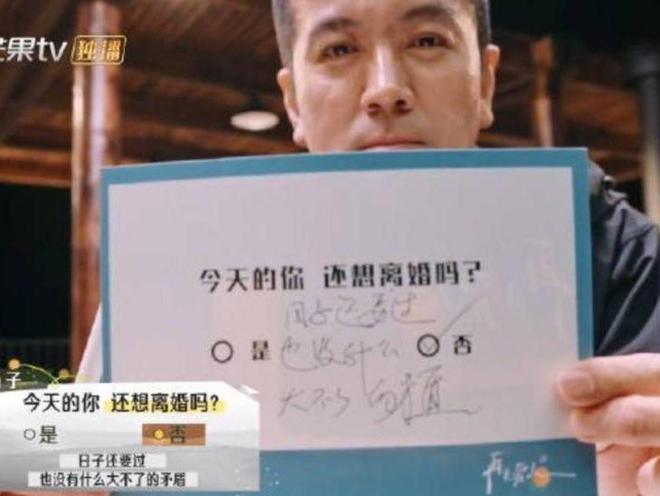 芒果tv 独播
今天的你 还想离婚吗?
日子还要过
○ 是 ○ 否
也没什么
大不了的矛盾
子
今天的你 还想离婚吗?
○是 ○否
日子还要过
也没有什么大不了的矛盾
再见爱人